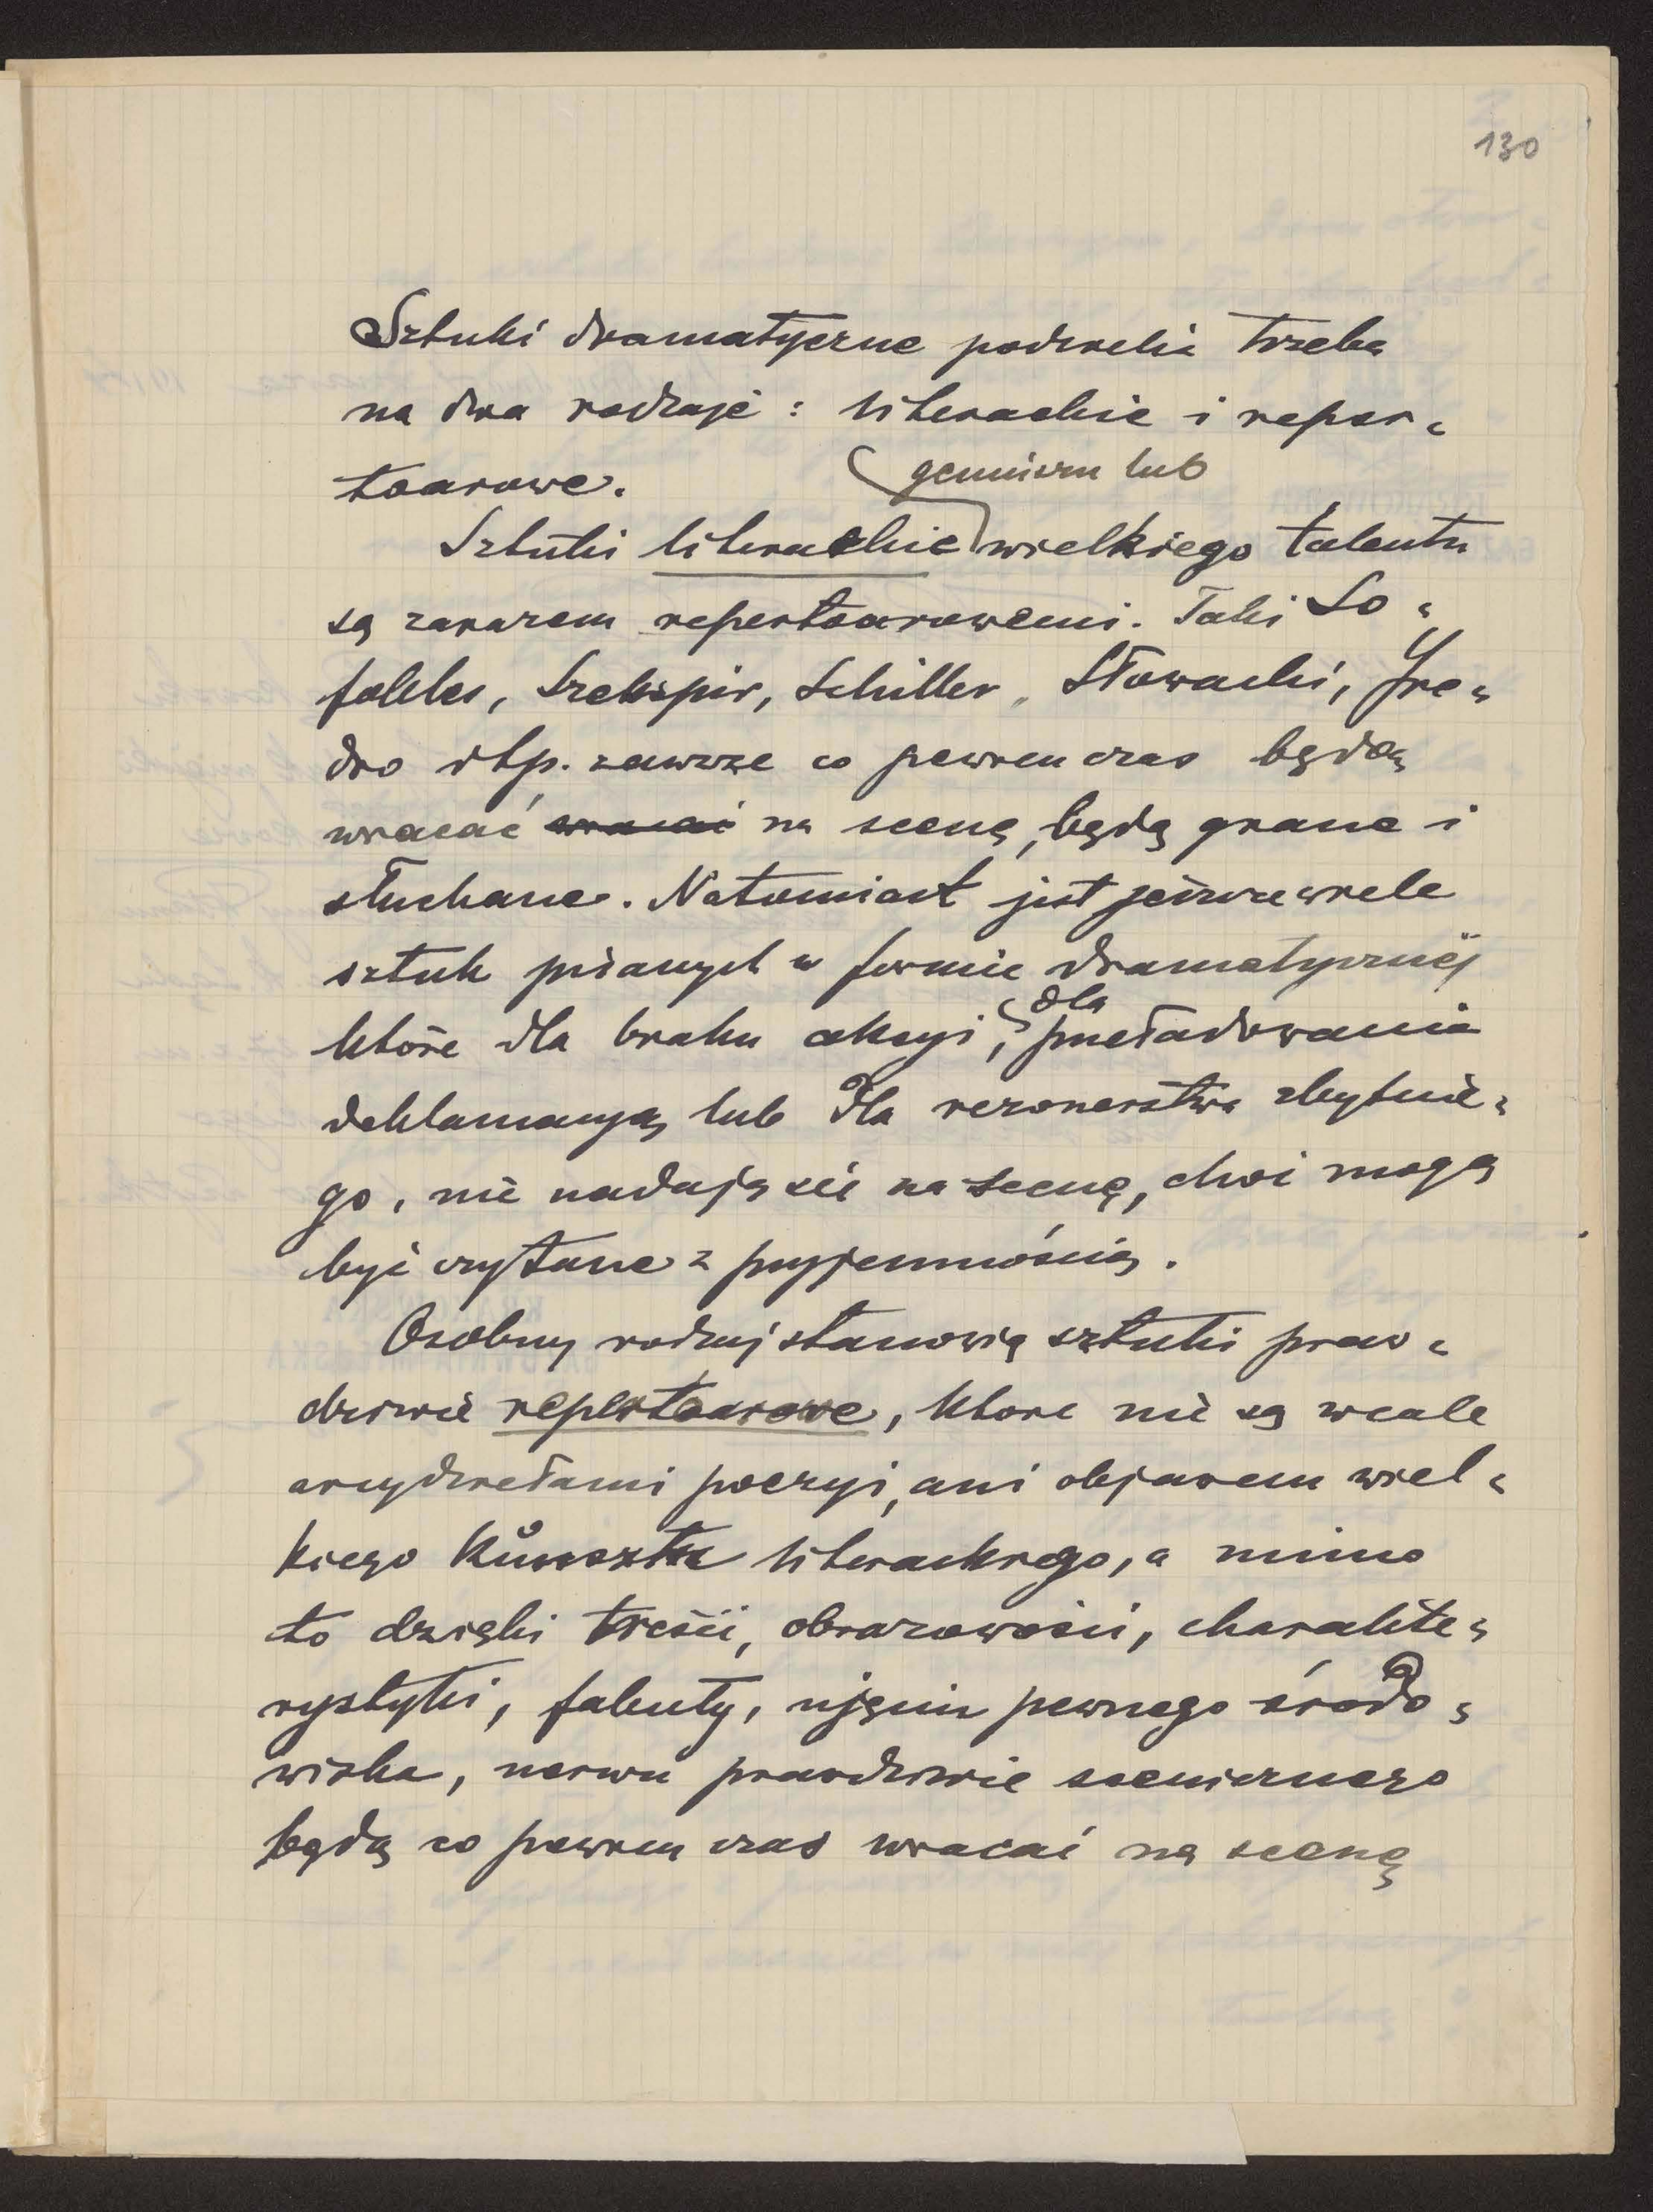 130
Sztuki dramatyczne podzielić trzeba
na dwa rodzaje: literackie i reper-
toarowe.
geniuszu lub
Sztuki literackie wielkiego talentu
są zarazem repertoarowemi. Taki So-
fokles, Szekspir, Schiller, Słowacki, Fre-
dro itp. zawsze co pewien czas będą
wracać wracać na scenę, będą grane i
słuchane. Natomiast jest jeszcze wiele
sztuk pisanych w formie dramatycznej
dla
które dla braku akcyi, przeładowania
deklamacyą lub dla rezonerstwa zbytnie-
go, nie nadają się na scenę, choć mogą
być czytane z przyjemnością.
Osobny rodzaj stanowią sztuki praw-
dziwie repertoarowe, które nie są wcale
arcydziełami poezyi, ani objawem wiel-
kiego kunsztu literackiego, a mimo
to dzięki treści, obrazowości, charakte-
rystyki, fabuły, ujęciu pewnego środo-
wiska, nerwu prawdziwie scenicznego
będą co pewien czas wracać na scenę